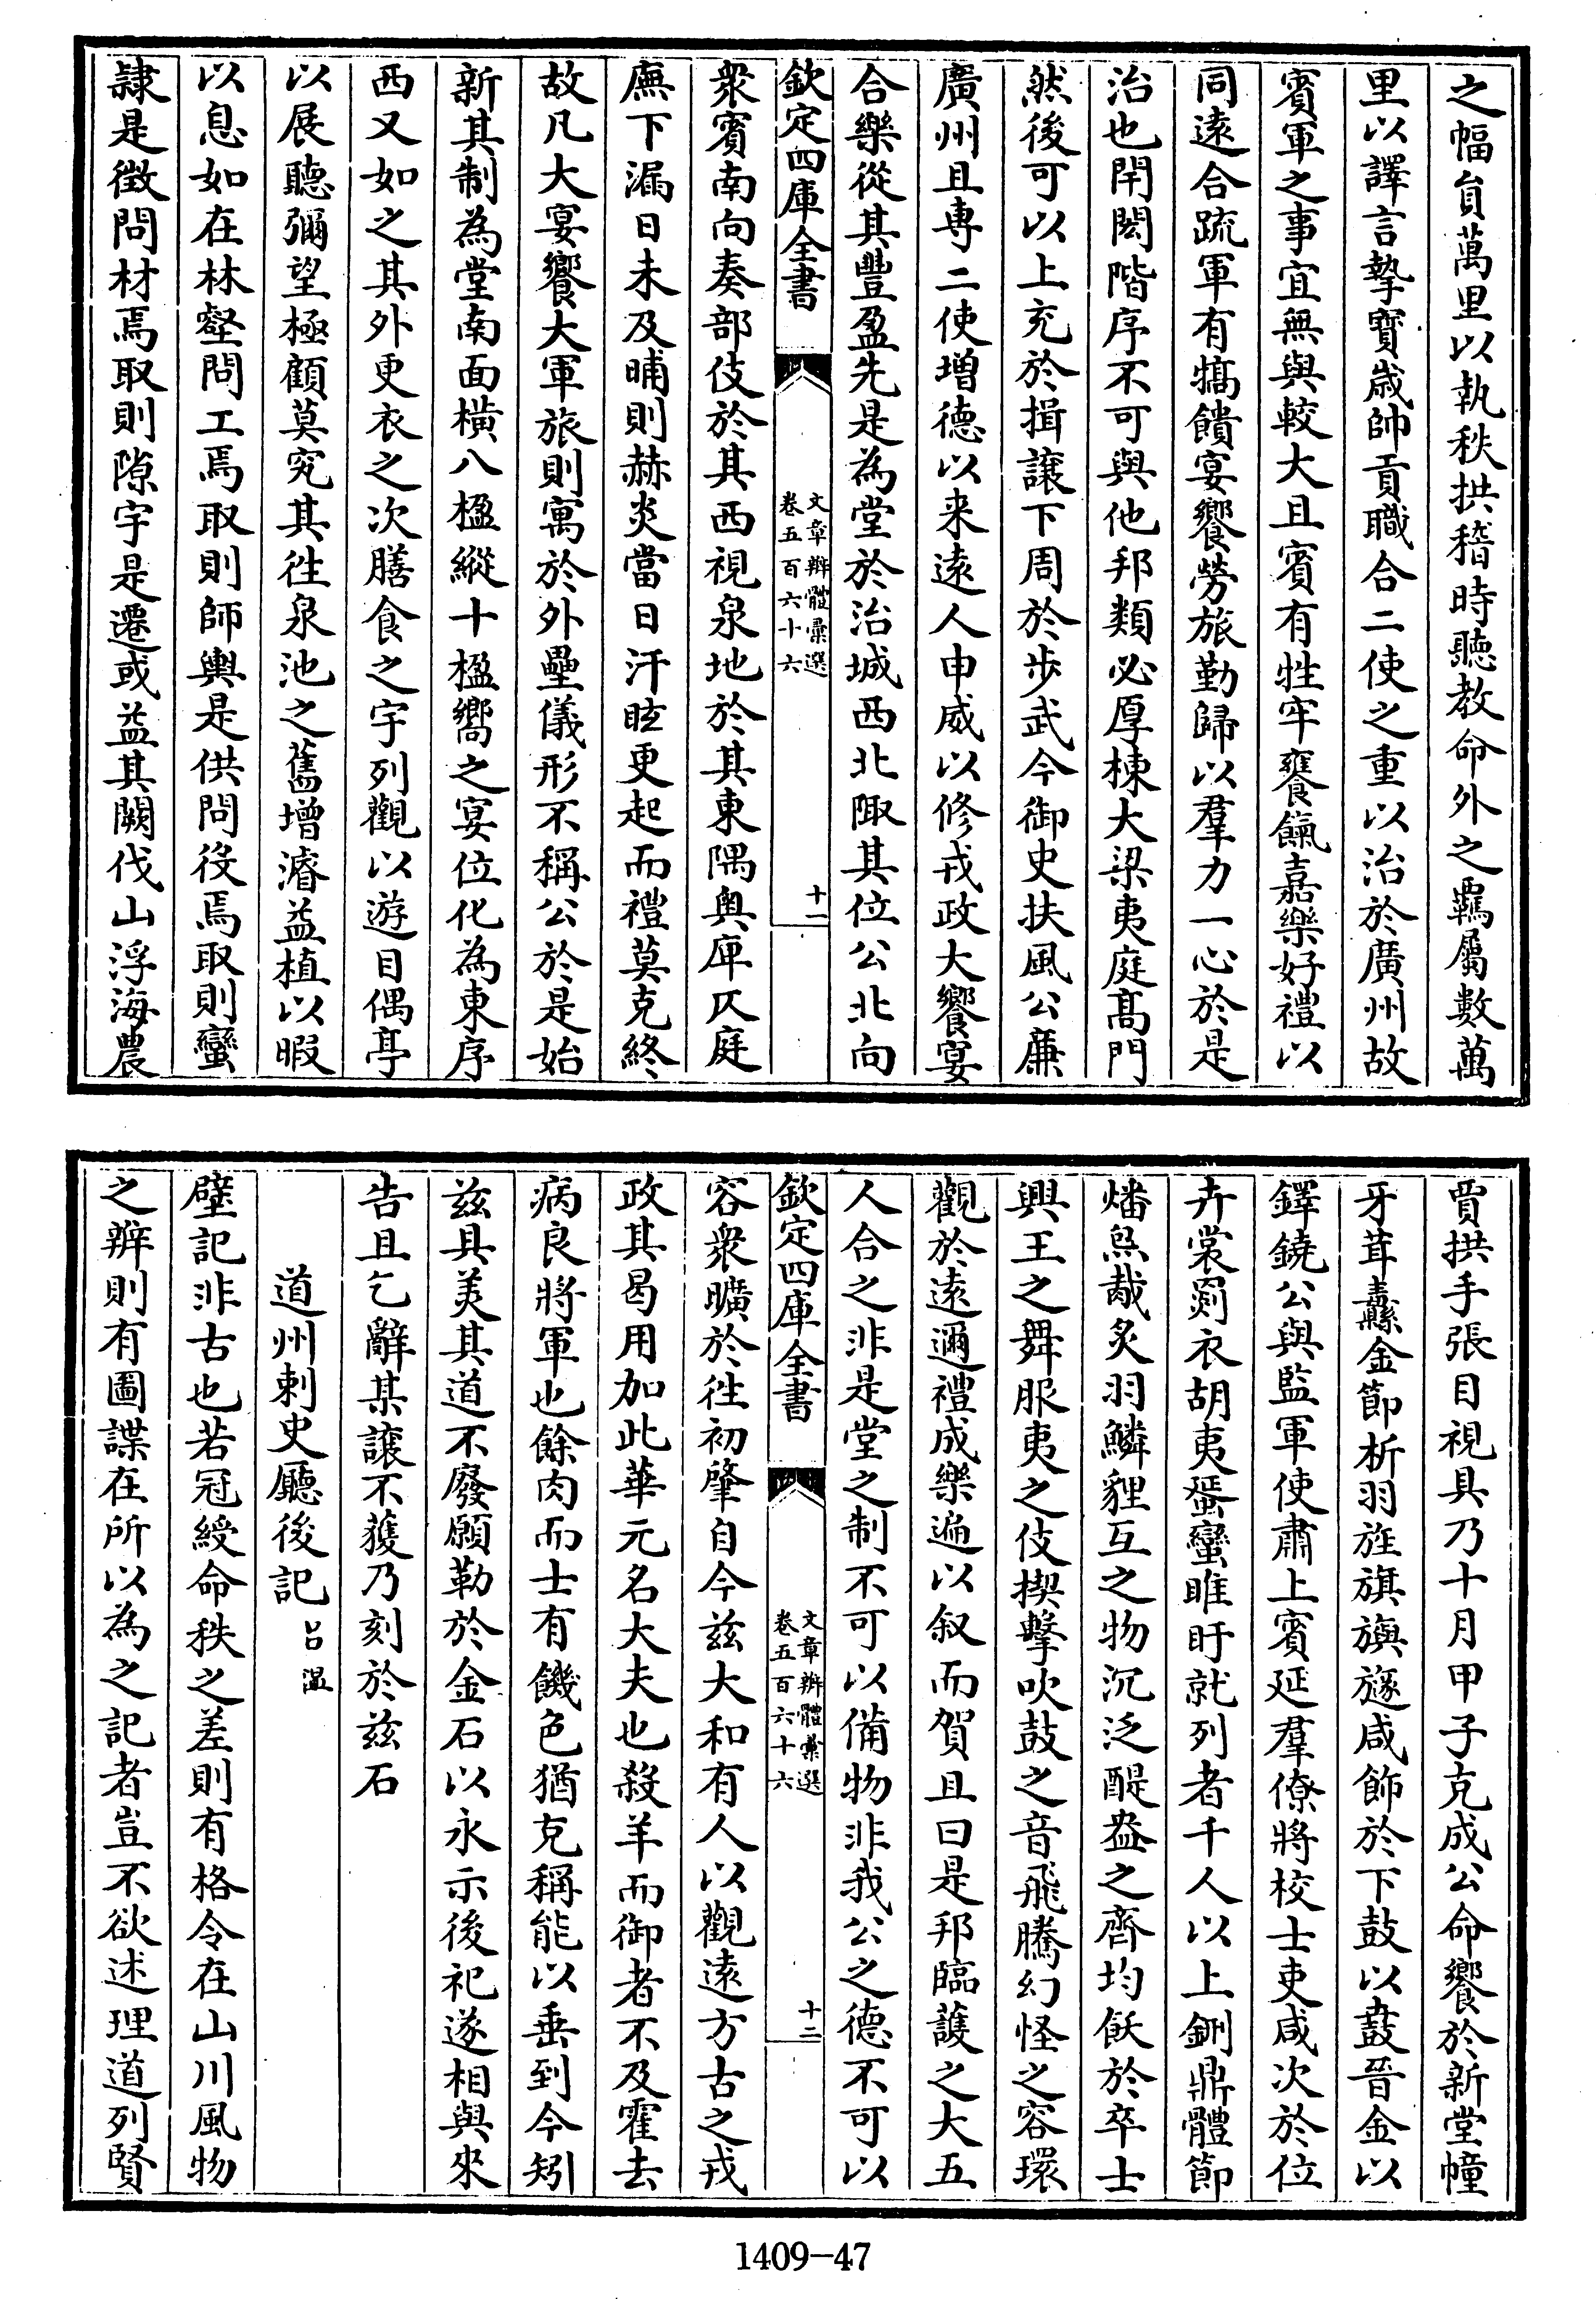 之幅員萬里以執秩拱稽時聽教命外之羈屬數萬
里以譯言摯寶歲帥貢職合二使之重以治於廣州故
賓軍之事宜無與較大且賓有牲牢饔餼嘉樂好禮以
同遠合疏軍有犒饋宴饗勞旅勤歸以羣力一心於是
治也閈閎階序不可與他邦類必厚棟大梁夷庭髙門
然後可以上充於揖讓下周於步武今御史扶風公亷
廣州且專二使增德以来遠人申威以修戎政大饗宴
合樂從其豐盈先是為堂於治城西北陬其位公北向
欽定四庫全書
文章辨體彙選
卷五百六十六
十一
衆賓南向奏部伎於其西視泉池於其東隅奥庳仄庭
廡下漏日未及晡則赫炎當日汗眩更起而禮莫克終
故凡大宴饗大軍旅則寓於外壘儀形不稱公於是始
新其制為堂南面橫八楹縱十楹嚮之宴位化為東序
西又如之其外更衣之次膳食之宇列觀以遊目偶亭
以展聽彌望極顧莫究其徃泉池之舊增濬益植以暇
以息如在林壑問工焉取則師輿是供問役焉取則蠻
隸是徵問材焉取則隙宇是遷或益其闕伐山浮海農
賈拱手張目視具乃十月甲子克成公命饗於新堂幢
牙茸纛金節析羽旌旗旟旞咸飾於下鼓以鼖晉金以
鐸鐃公與監軍使肅上賓延羣僚將校士吏咸次於位
卉裳罽衣胡夷蜑蠻睢盱就列者千人以上鉶鼎體節
燔炰胾炙羽鱗貍互之物沉泛醍盎之齊均飫於卒士
興王之舞服夷之伎揳擊吹鼓之音飛騰幻怪之容環
觀於遠邇禮成樂遍以叙而賀且曰是邦臨護之大五
人合之非是堂之制不可以備物非我公之德不可以
欽定四庫全書
文章辨體彙選
卷五百六十六
十二
容衆曠於徃初肇自今兹大和有人以觀遠方古之戎
政其曷用加此華元名大夫也殺羊而御者不及霍去
病良將軍也餘肉而士有饑色猶克稱能以垂到今矧
兹具美其道不廢願勒於金石以永示後祀遂相與來
告且乞辭某讓不獲乃刻於兹石
道州刺史廳後記 呂温
壁記非古也若冠綬命秩之差則有格令在山川風物
之辨則有圖諜在所以為之記者豈不欲述理道列賢
1409-47